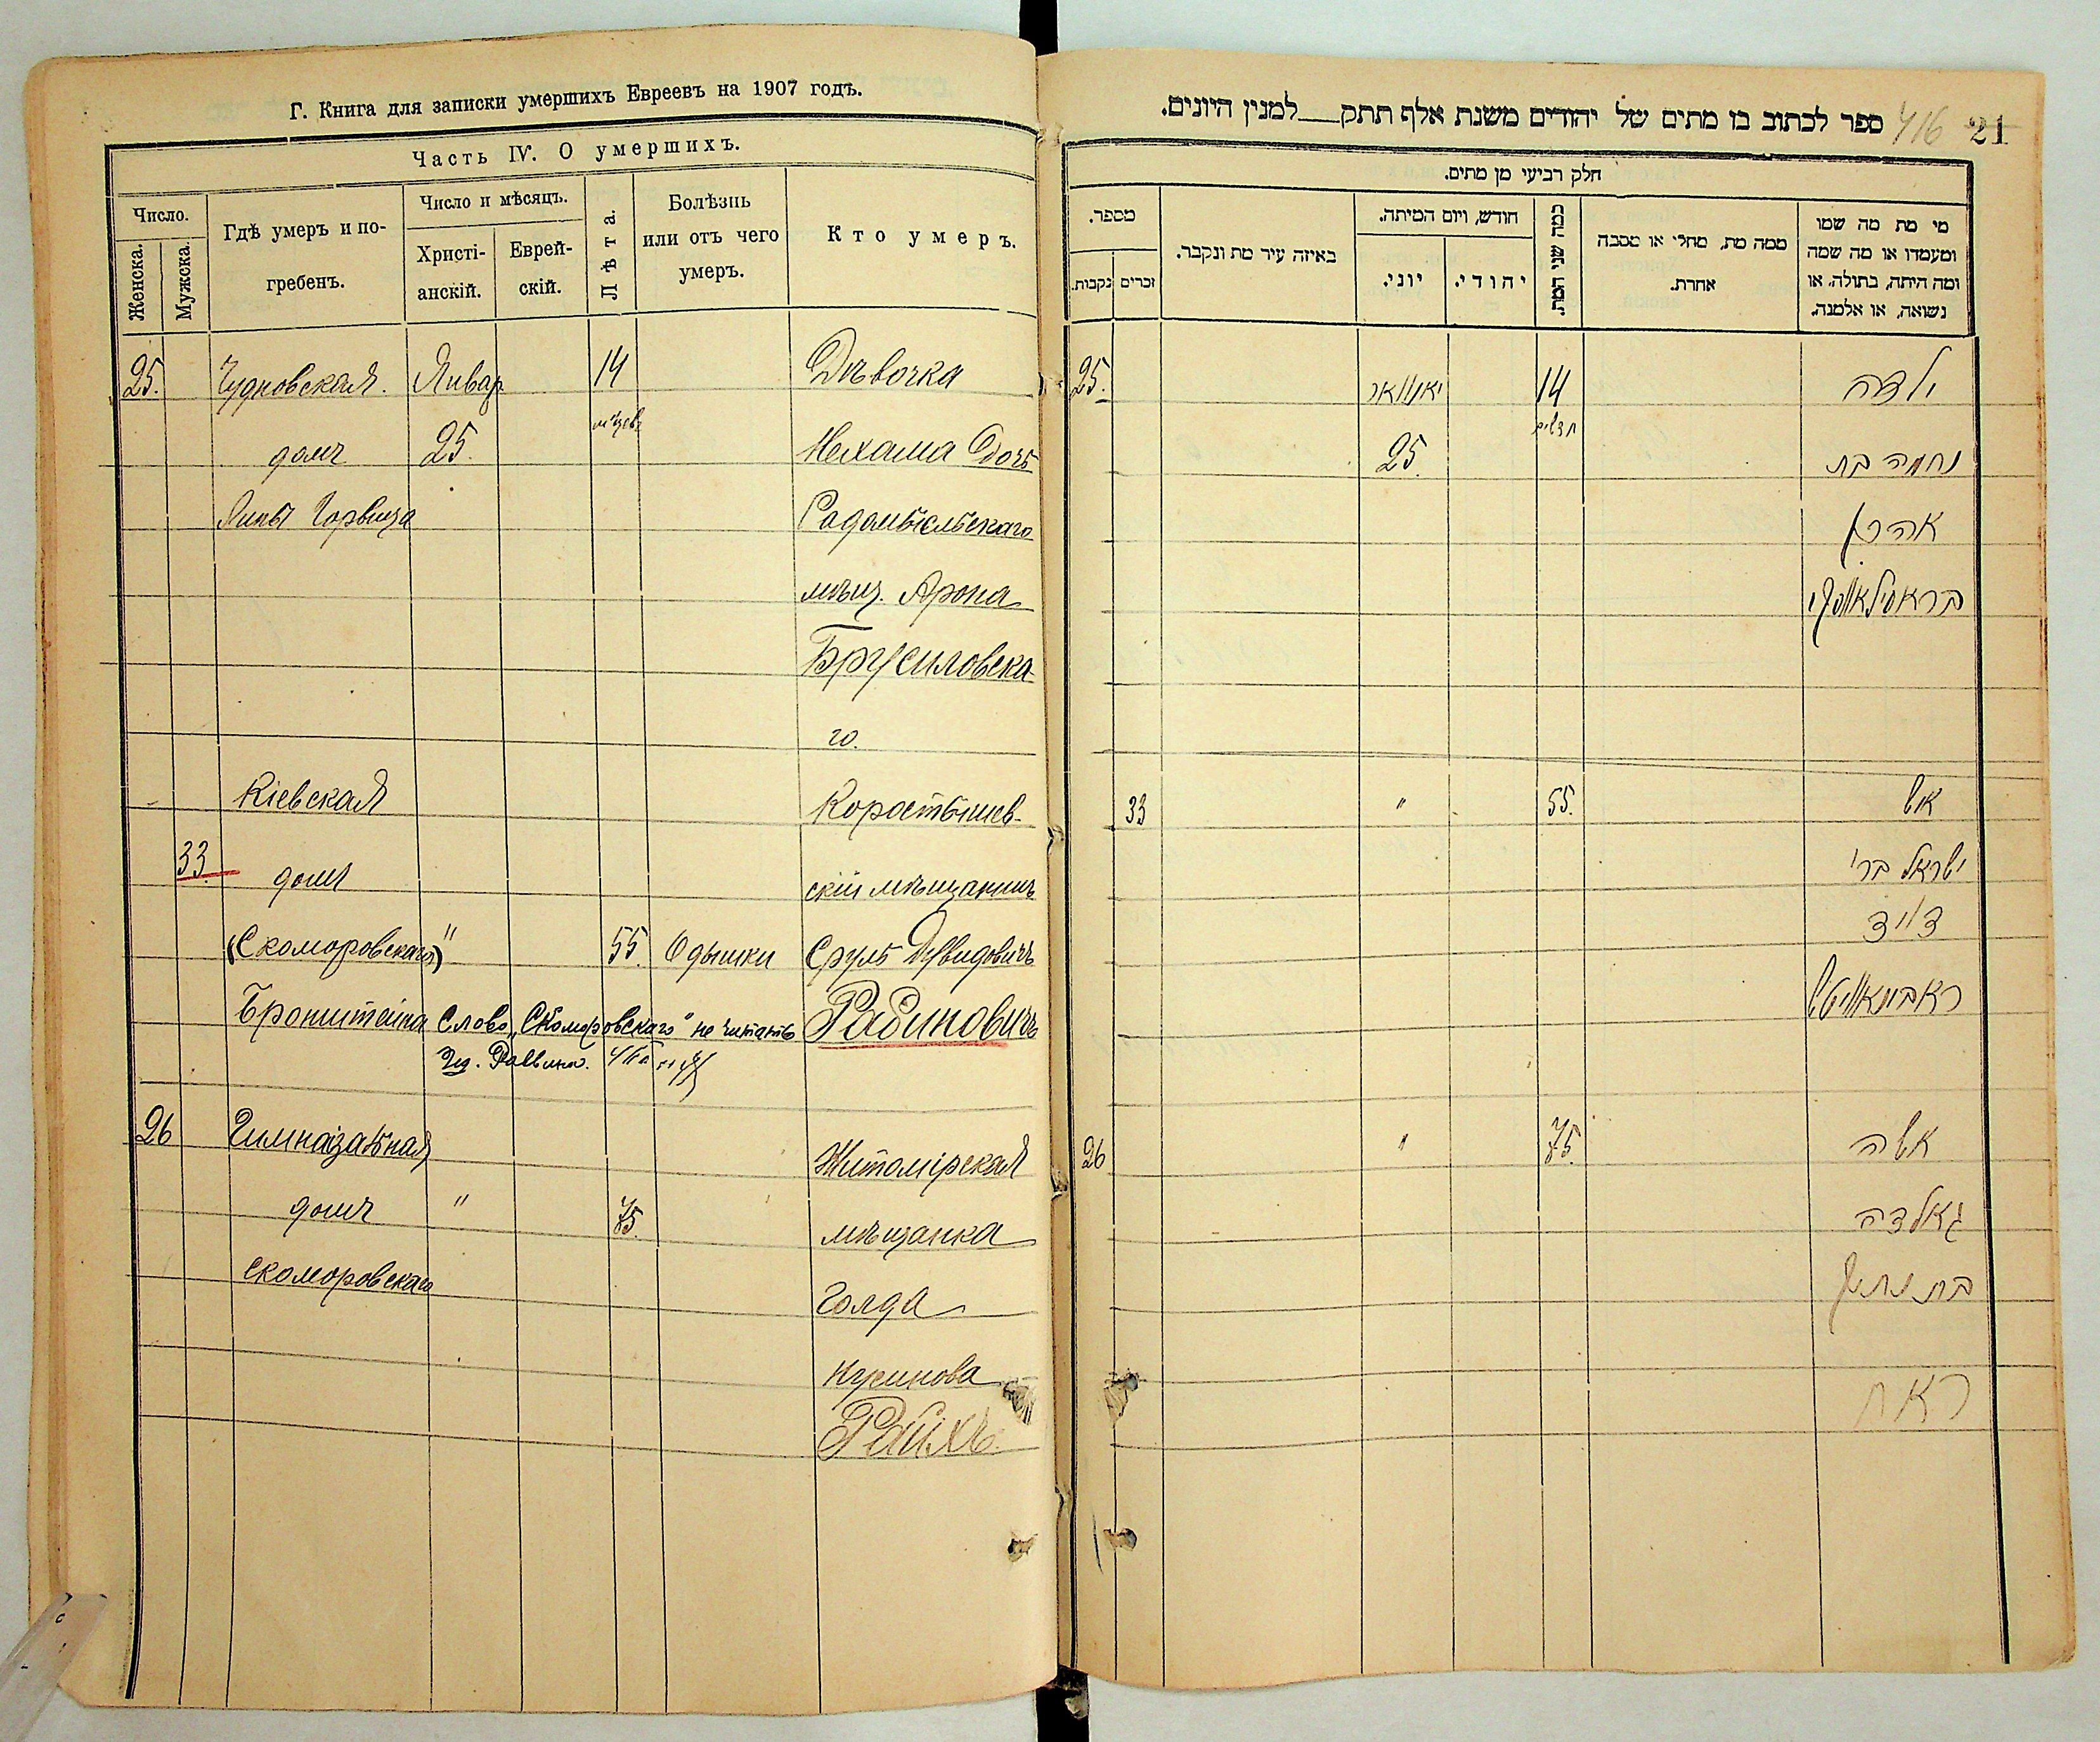 Г. Книга для записки умершихъ Евреевъ на 1907 годъ.
Часть IV. О умершихъ.
Число.
Женска.
Мужска.
Гдѣ умеръ и по-
гребенъ.
Число и мѣсяцъ.
Христі-
анскій.
Еврей-
скій.
Лѣта.
Болѣзнь
или отъ чего
умеръ.
Кто умеръ.
25. Чудновская. Январ 14 Дѣвочка
домъ 25. м-цев Нехама Дочь
Липы Горвица Радомысльскаго
мѣщ. Арона
Брусиловска-
го.
Кіевская Коростышев-
33. домъ скій мѣщанинъ
(Скоморовскаго) " 55. Одышки Сруль Дувидовичъ
Бронштейна Слово „Скоморовскаго" не читать Рабиновичъ
26 Гимназіальная Житомірская
домъ " 75. мѣщанка
Скоморовскаго Голда
Нусинова
Райхъ.
ספר לכתוב בו מתים של יהודים משנת אלף תתק—למנין היונים.
416 21
חלק רביעי מן מתים.
מספר.
נקבות.
זכרים
באיזה עיר מת ונקבר.
חודש, ויום המיתה.
יוני.
יהודי.
כמה שני המת.
ממה מת, מחלי או מסבה
אחרת.
מי מת מה שמו
ומעמדו או מה שמה
ומה היתה, בתולה, או
נשואה, או אלמנה.
25. יאנואר 14 ילדה
25. חדשים נחמה בת
אהרן
בראסילאווסקי
33 " 55. איש
ישראל ברי
דוד
ראבינאוויטש
26 " 75. אשה
גאלדה
בת